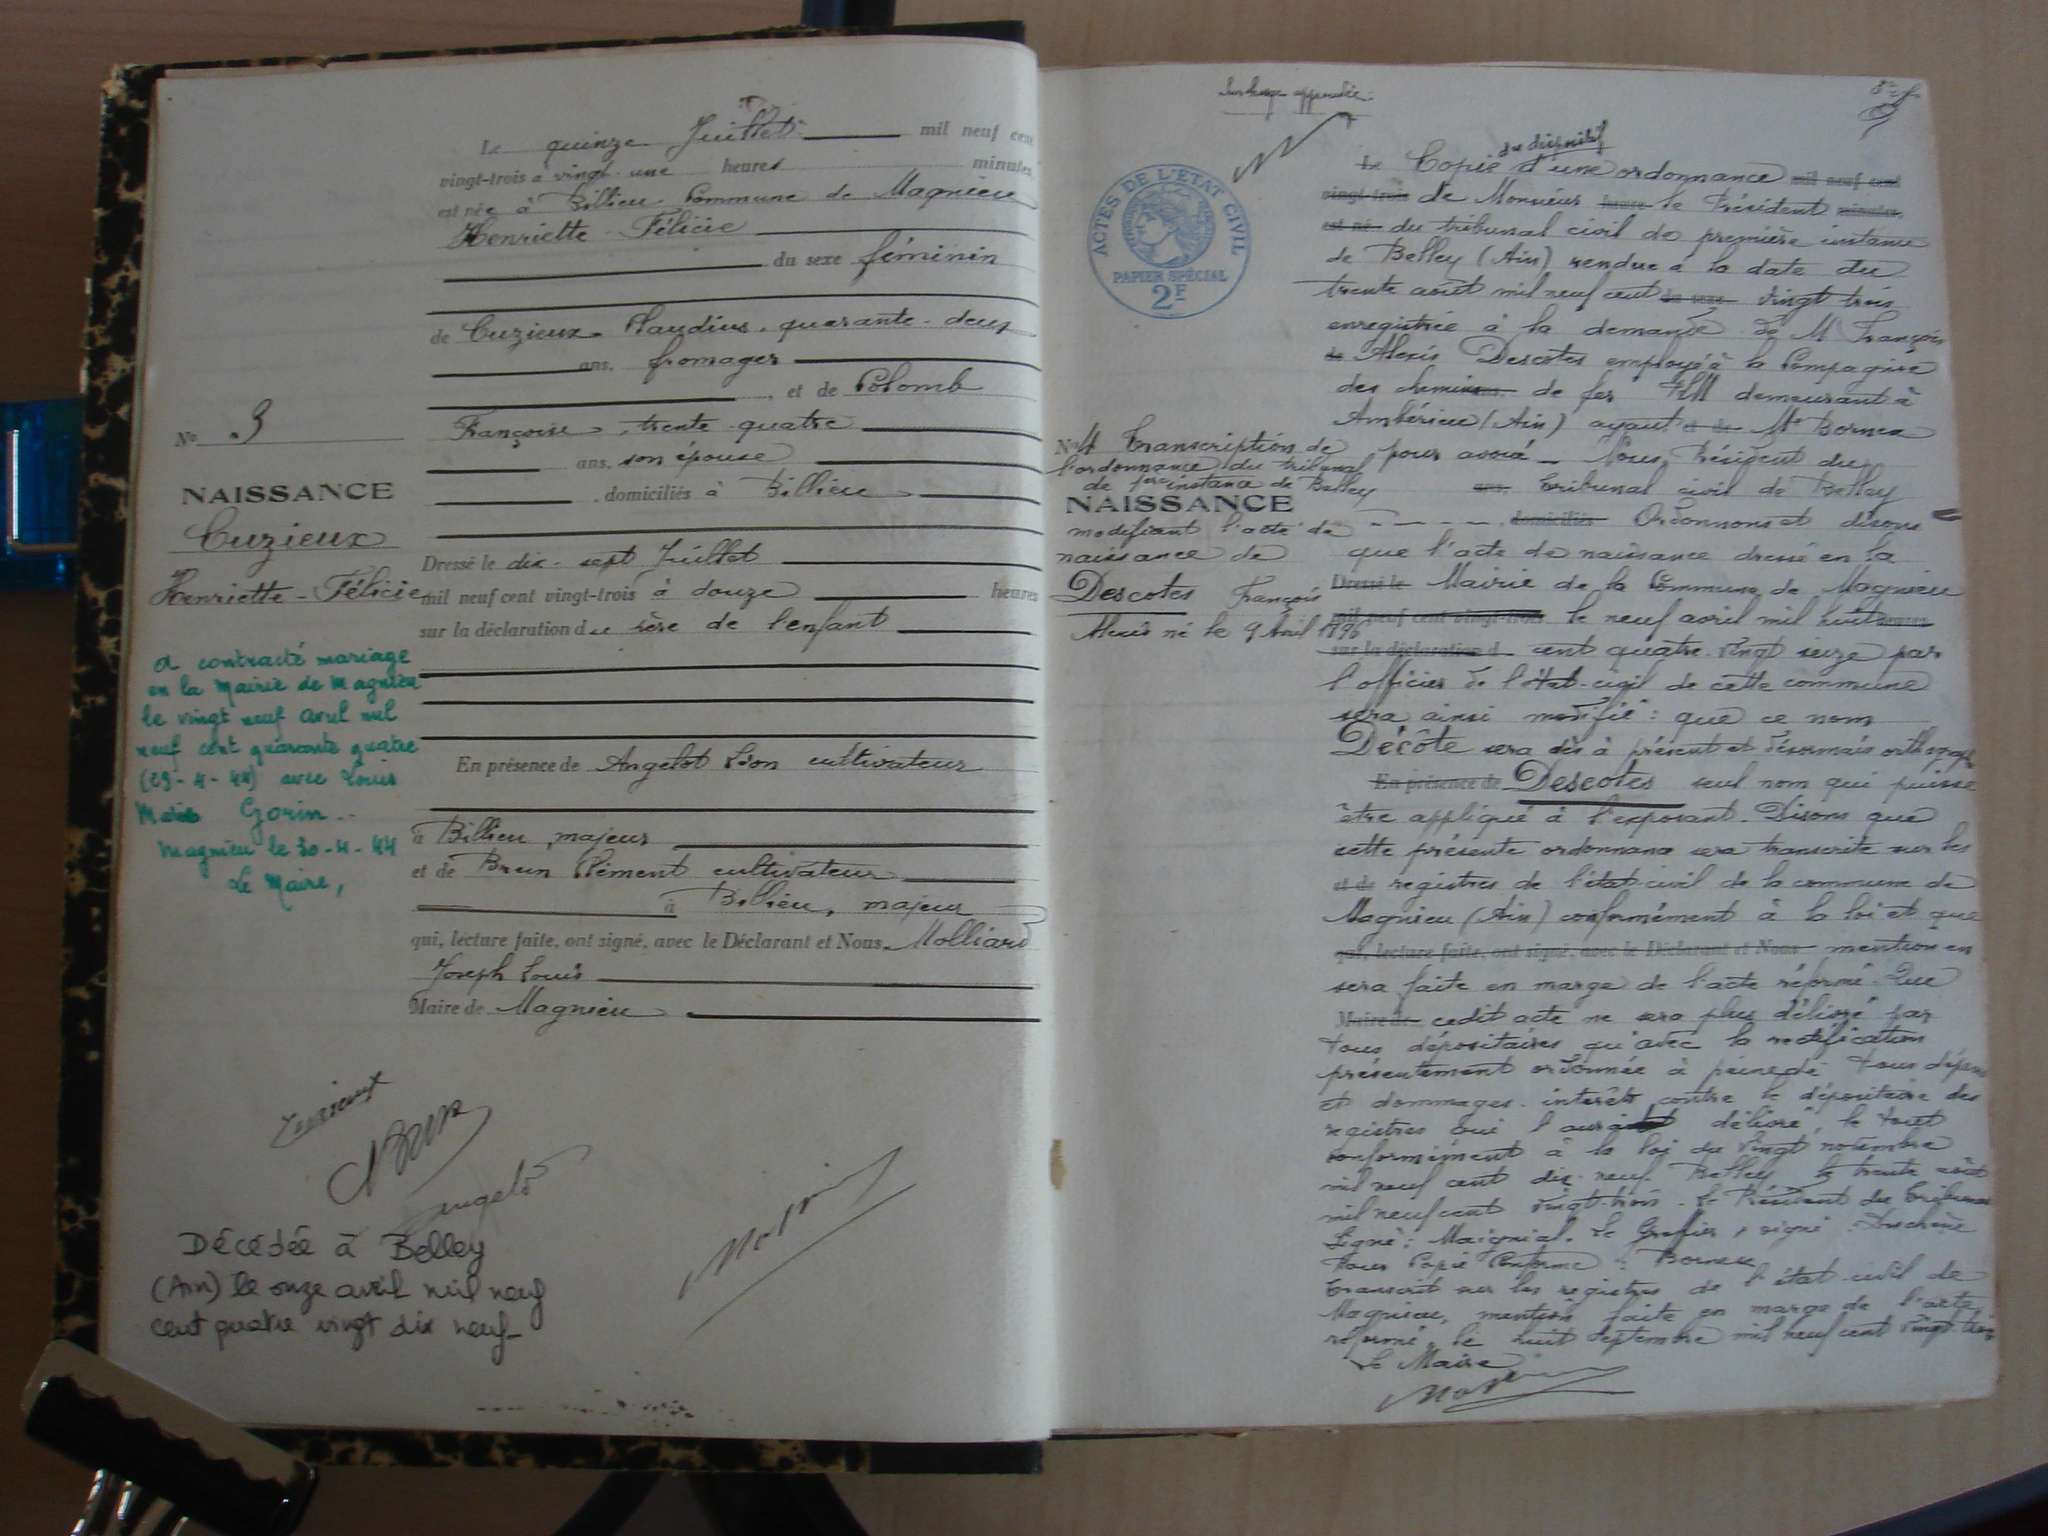 Le quinze Juillet mil neuf cent
vingt-trois à vingt une heures minutes
est née à Billieu Commune de Magnieu
Henriette Félicie
du sexe féminin
de Cuzieux Claudius, quarante-deux
ans, fromager
, et de Colomb
Françoise, trente quatre
ans, son épouse
, domiciliés à Billieu
Dressé le dix-sept Juillet
mil neuf cent vingt-trois à douze heures
sur la déclaration du père de l'enfant
En présence de Angelot Léon cultivateur
à Billieu, majeur
et de Brun Clément cultivateur
à Billieu, majeur
qui, lecture faite, ont signé, avec le Déclarant et Nous, Molliard
Joseph Louis
Maire de Magnieu
No 3
NAISSANCE
Cuzieux
Henriette-Félicie
a contracté mariage
en la Mairie de Magnieu
le vingt neuf avril mil
neuf cent quarante quatre
(29-4-44) avec Louis
Marie Gorin..
Magnieu le 30-4-44
Le Maire,
Cuzieux
Brun
Angelot
Décédée à Belley
(Ain) le onze avril mil neuf
cent quatre vingt dix neuf
Surcharge approuvée
ACTES DE L'ETAT CIVIL
PAPIER SPÉCIAL
2F
No 4 Transcription de
l'ordonnance du tribunal
de 1ère instance de Belley
NAISSANCE
modifiant l'acte de
naissance de
Descotes François
Alexis né le 9 Avril 1896
du dispositif
Le Copie d'une ordonnance mil neuf cent
vingt-trois de Monsieur heure le Président minutes
est né du tribunal civil de première instance
de Belley (Ain) rendue à la date du
trente août mil neuf cent du sexe vingt trois
enregistrée à la demande de Mr François
de Alexis Descotes employé à la Compagnie
des chemins de fer PLM demeurant à
Ambérieu (Ain) ayant et de Me Bornex
pour avoué _ Nous, Président du
ans, Tribunal civil de Belley
domiciliés Ordonnons et disons
que l'acte de naissance dressé en la
Dressé le Mairie de la Commune de Magnieu
mil neuf cent vingt-trois le neuf avril mil huit heures
sur la déclaration d cent quatre-vingt seize par
l'officier de l'état-civil de cette commune
sera ainsi modifié : que ce nom
Décôte sera dès à présent et désormais orthographié
En présence de Descotes seul nom qui puisse
être appliqué à l'exposant. Disons que
cette présente ordonnance sera transcrite sur les
et de registres de l'état-civil de la commune de
Magnieu (Ain) conformément à la loi et que
qui, lecture faite, ont signé, avec le Déclarant et Nous mention en
sera faite en marge de l'acte réformé. Que
Maire de cedit acte ne sera plus délivré par
tous dépositaires qu'avec la rectification
présentement ordonnée à peine de tous dépens
et dommages-interêts contre le dépositaire des
registres qui l'aurait délivré, le tout
conformément à la loi du vingt novembre
mil neuf cent dix-neuf. Belley, le trente août
mil neuf cent vingt-trois. Le Président du Tribunal
Signé : Maignial. Le Greffier, signé :
Pour Copie Conforme : Bornex
Transcrit sur les registres de l'état-civil de
Magnieu, mention faite en marge de l'acte
réformé, le huit septembre mil neuf cent vingt-trois
Le Maire